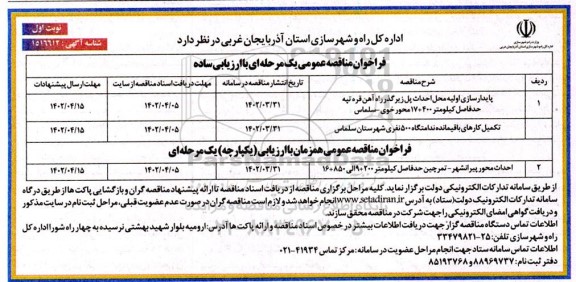 نوبت اول
شناسه آگهی: ۱۵۱۶۶۱۲
اداره کل راه و شهرسازی استان آذربایجان غربی در نظر دارد
فراخوان مناقصه عمومی یک مرحله ای با ارزیابی ساده
ردیف شرح مناقصه تاریخ انتشار مناقصه در سامانه مهلت دریافت اسناد مناقصه از سایت مهلت ارسال پیشنهادات
۱ پایدارسازی اولیه محل احداث پل زیرگذر راه آهن قره تپه
حدفاصل کیلومتر ۴۰۰+۱۷ محور خوی - سلماس ۱۴۰۲/۰۳/۳۱ ۱۴۰۲/۰۴/۰۵ ۱۴۰۲/۰۴/۱۵
تکمیل کارهای باقیمانده ندامتگاه ۵۰۰ نفری شهرستان سلماس ۱۴۰۲/۰۳/۳۱ ۱۴۰۲/۰۴/۰۵ ۱۴۰۲/۰۴/۱۵
فراخوان مناقصه عمومی همزمان با ارزیابی (یکپارچه) یک مرحله ای
۲ احداث محور پیرانشهر - تمرچین حدفاصل کیلومتر ۲۰۰+۹ الی ۸۵۰+۱۶ ۱۴۰۲/۰۳/۳۱ ۱۴۰۲/۰۴/۰۵ ۱۴۰۲/۰۴/۱۵
از طریق سامانه تدارکات الکترونیکی دولت برگزار نماید. کلیه مراحل برگزاری مناقصه از دریافت اسناد مناقصه تا ارائه پیشنهاد مناقصه گران و بازگشایی پاکت ها از طریق درگاه
سامانه تدارکات الکترونیک دولت (ستاد) به آدرس www.setadiran.ir انجام خواهد شد و لازم است مناقصه گران در صورت عدم عضویت قبلی، مراحل ثبت نام در سایت مذکور
و دریافت گواهی امضای الکترونیکی را جهت شرکت در مناقصه محقق سازند.
اطلاعات تماس دستگاه مناقصه گزار جهت دریافت اطلاعات بیشتر در خصوص اسناد مناقصه و ارائه پاکت ها آدرس: ارومیه بلوار شهید بهشتی نرسیده به چهار راه شورا اداره کل
راه و شهرسازی تلفن: ۲۵-۳۳۴۷۹۸۲۱
اطلاعات تماس سامانه ستاد جهت انجام مراحل عضویت در سامانه: مرکز تماس ۴۱۹۳۴-۰۲۱
دفتر ثبت نام: ۸۸۹۶۹۷۳۷ و ۸۵۱۹۳۷۶۸